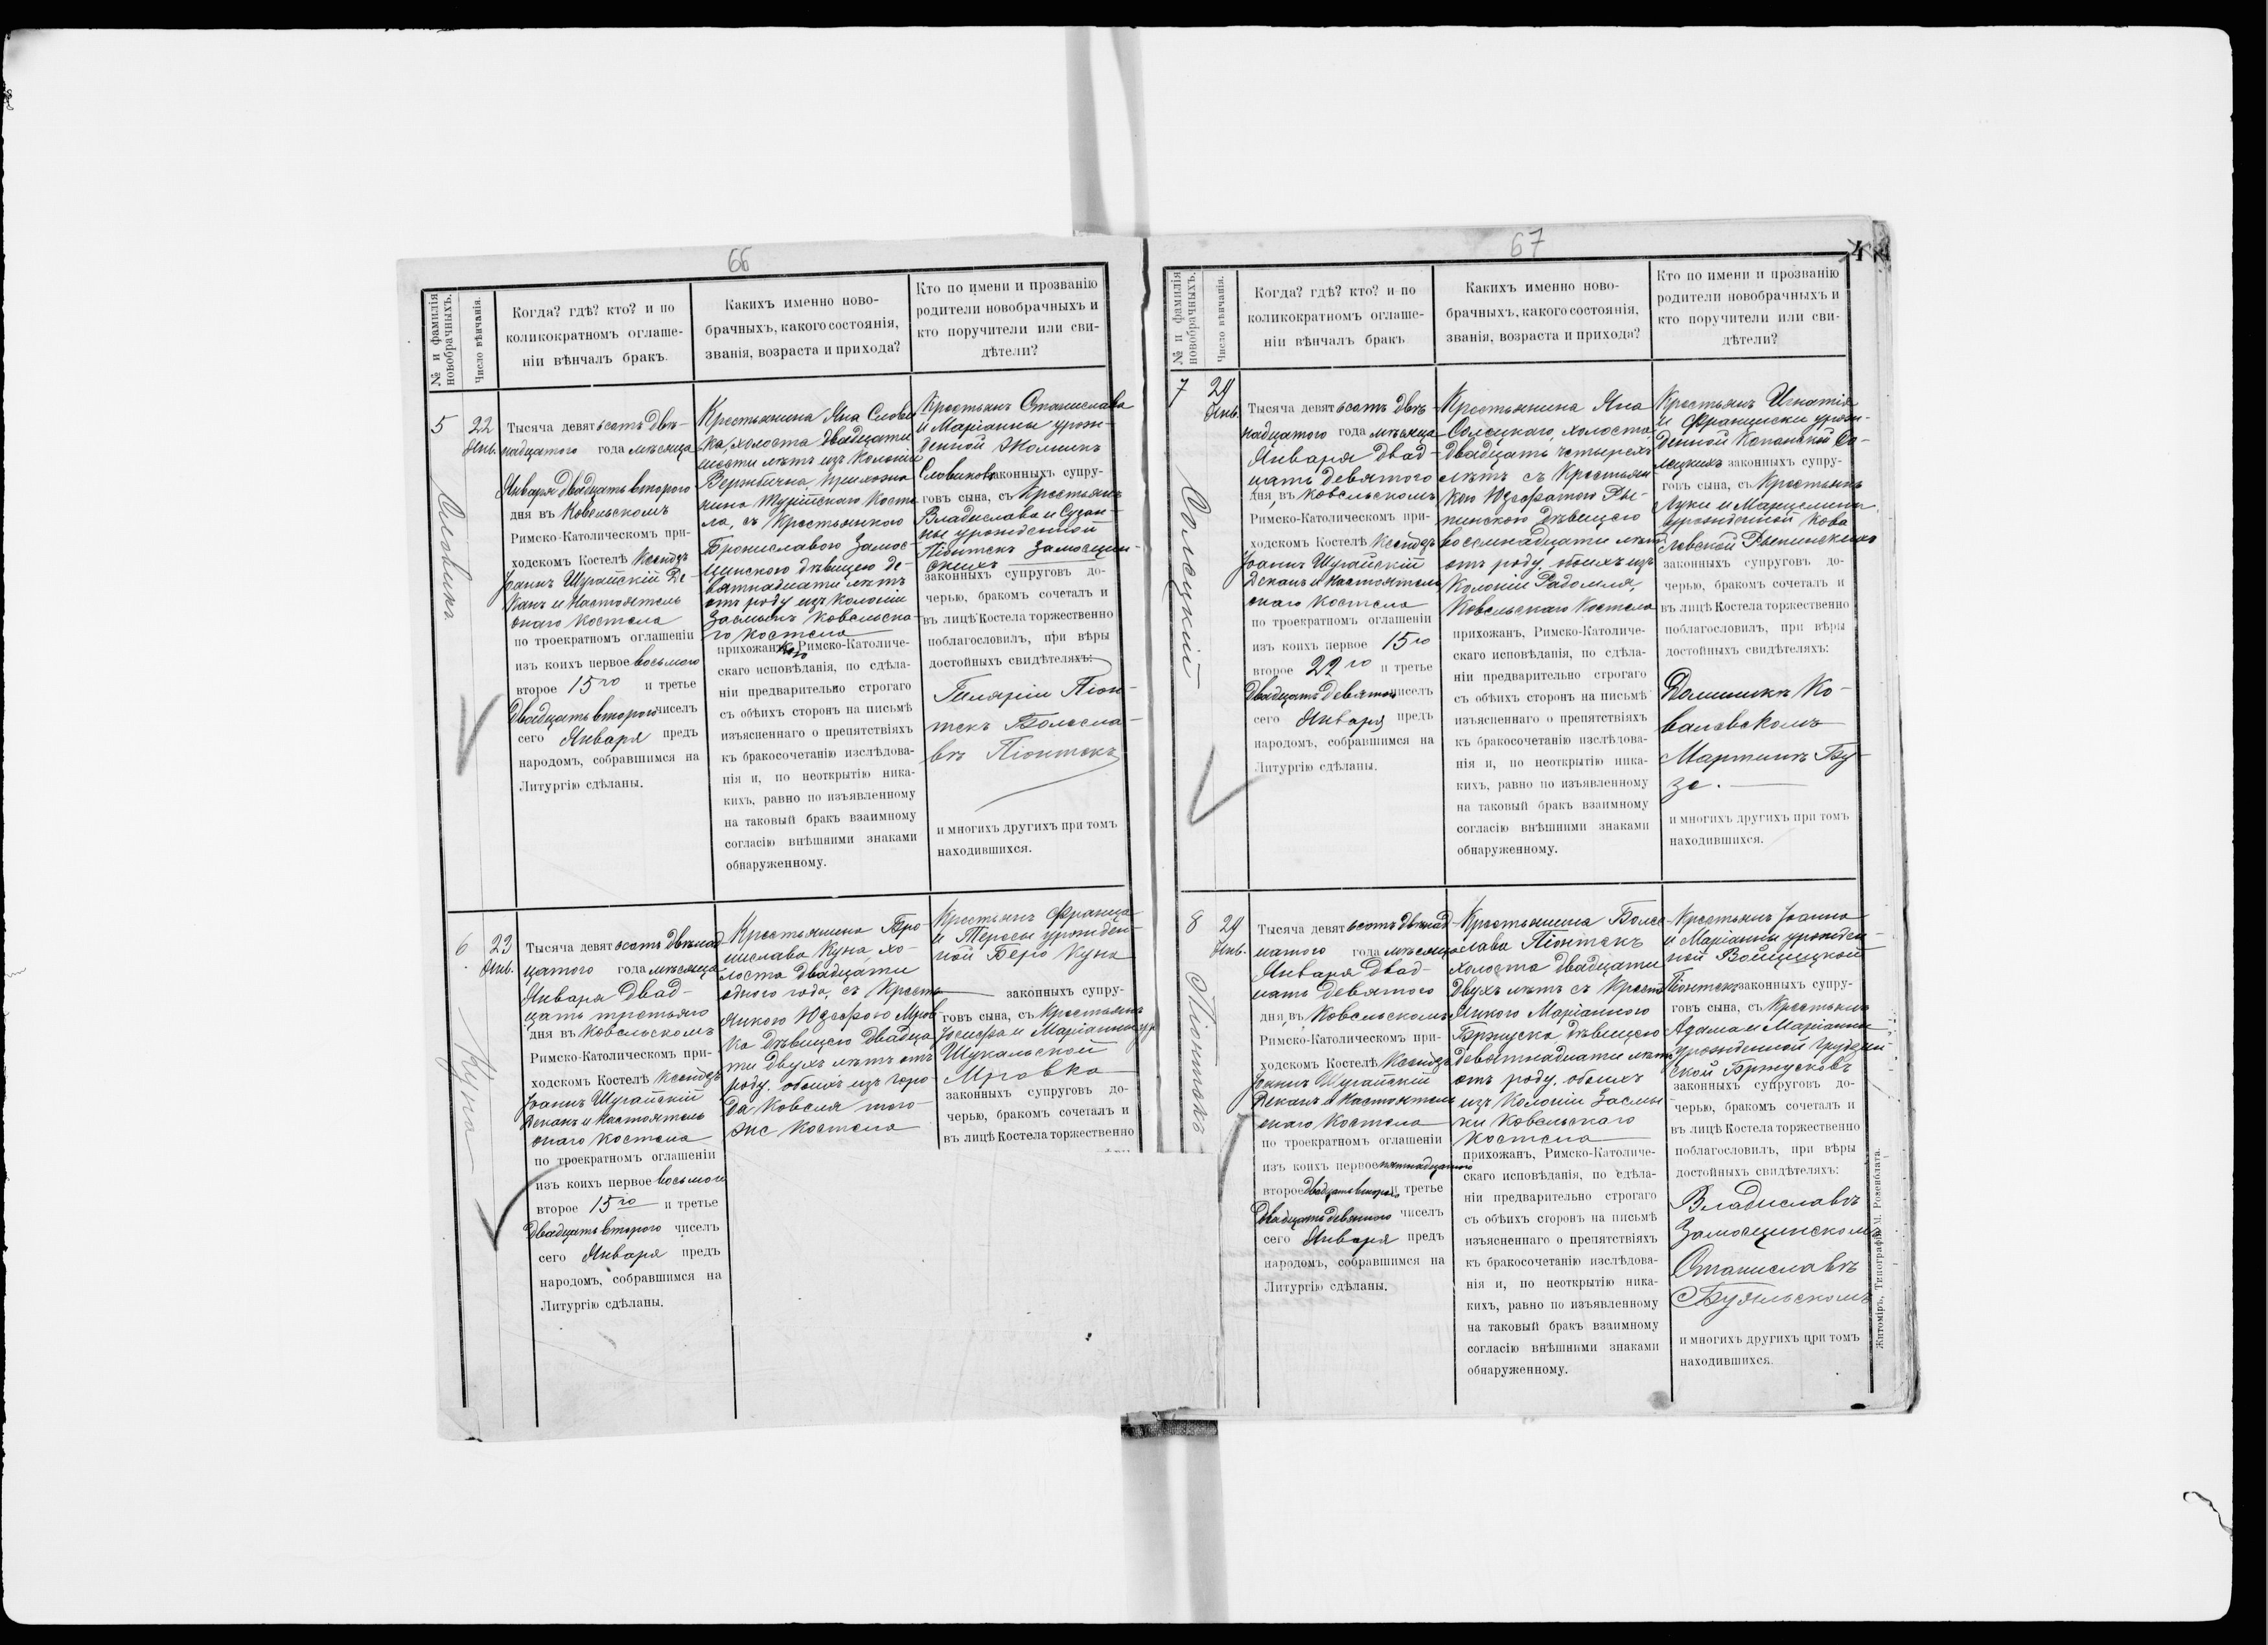 66
№ и фамилія новобрачныхъ.
Число вѣнчанія.
Когда? гдѣ? кто? и по
коликократномъ оглаше-
ніи вѣнчалъ бракъ.
Какихъ именно ново-
брачныхъ, какого состоянія,
званія, возраста и прихода?
Кто по имени и прозванію
родители новобрачныхъ и
кто поручители или сви-
дѣтели?
5
22
Янв.
Словикъ
Тысяча девятьсотъ двѣ-
надцатого года мѣсяца
Января двадцать второго
дня въ Ковельскомъ
Римско-Католическомъ при-
ходскомъ Костелѣ Ксендзъ
Іоаннъ Шугайскій Де-
канъ и Настоятель
онаго Костела
по троекратномъ оглашеніи
изъ коихъ первое восьмого
второе 15го и третье
двадцать второго чиселъ
сего Января предъ
народомъ, собравшимся на
Литургію сдѣланы.
Крестьянина Яна Слови
ка, холоста двадцати
шести лѣтъ изъ Колоніи
Вербична, прихожа
нина Турійскаго Косте
ла, съ Крестьянкою
Брониславою Замос-
цинскою дѣвицею де-
вятнадцати лѣтъ
отъ роду изъ Колоніи
Засмыкъ Ковельска-
го Костела
прихожан Римско-Католиче-
скаго исповѣданія, по сдѣла-
ніи предварительно строгаго
съ обѣихъ сторонъ на письмѣ
изъясненнаго о препятствіяхъ
къ бракосочетанію изслѣдова-
нія и, по неоткрытію ника-
кихъ, равно по изъявленному
на таковый бракъ взаимному
согласію внѣшними знаками
обнаруженному.
Крестьянъ Станислава
и Маріанны урож-
денной
Словиковъ законныхъ супру-
говъ сына, съ Крестьянъ
Владислава и Сузан-
ны урожденной
Піонтекъ Замосцин-
скихъ
законныхъ супруговъ до-
черью, бракомъ сочеталъ и
въ лицѣ Костела торжественно
поблагословилъ, при вѣры
достойныхъ свидѣтеляхъ:
Гиляріи Піон-
текъ Болесла-
въ Піонтекъ
и многихъ другихъ при томъ
находившихся.
6
23
Янв.
Куна
Тысяча девятьсотъ двѣнад
цатого года мѣсяца
Января двад-
цать третьяго
дня въ Ковельскомъ
Римско-Католическомъ при-
ходскомъ Костелѣ Ксендзъ
Іоаннъ Шугайскій
Деканъ и Настоятель
онаго Костела
по троекратномъ оглашеніи
изъ коихъ первое восьмого
второе 15го и третье
двадцать второго чиселъ
сего Января предъ
народомъ, собравшимся на
Литургію сдѣланы.
Крестьянина Бро-
нислава Куна, хо-
лоста двадцати
одного года, съ Кресть
янкою Юзефою Мров
ка дѣвицею двадца
ти двухъ лѣтъ отъ
роду. обоихъ изъ горо
да Ковеля того-
же Костела
Крестьянъ Франца
и Тересы урожден-
ной Беро Куна
законныхъ супру-
говъ сына, съ Крестьянъ
Іосифа и Маріанны ур
Шукальской
Мровка
законныхъ супруговъ до-
черью, бракомъ сочеталъ и
въ лицѣ Костела торжественно
67
4
№ и фамилія новобрачныхъ.
Число вѣнчанія.
Когда? гдѣ? кто? и по
коликократномъ оглаше-
ніи вѣнчалъ бракъ
Какихъ именно ново-
брачныхъ, какого состоянія,
званія, возраста и прихода?
Кто по имени и прозванію
родители новобрачныхъ и
кто поручители или сви-
дѣтели?
7
29
Янв.
Солецкій
Тысяча девятьсотъ двѣ
надцатого года мѣсяца
Января двад-
цать девятого
дня, въ Ковельскомъ
Римско-Католическомъ при-
ходскомъ Костелѣ Ксендзъ
Іоаннъ Шугайскій
Деканъ и Настоятель
онаго Костела
по троекратномъ оглашеніи
изъ коихъ первое 15го
второе 22го и третье
двадцать девятого чиселъ
сего Января предъ
народомъ, собравшимся на
Литургію сдѣланы.
Крестьянина Яна
Солецкаго, холоста,
двадцать четырехъ
лѣтъ съ Крестьян
кою Юзефатою Ры-
пинскою дѣвицею
восемнадцати лѣтъ
отъ роду, обоихъ изъ
Колоніи Радомля,
Ковельскаго Костела
прихожан, Римско-Католиче-
скаго исповѣданія, по сдѣла-
ніи предварительно строгаго
съ обѣихъ сторонъ на письмѣ
изъясненнаго о препятствіяхъ
къ бракосочетанію изслѣдова-
нія и, по неоткрытію ника-
кихъ, равно по изъявленному
на таковый бракъ взаимному
согласію внѣшними знаками
обнаруженному.
Крестьянъ Игнатія
и Францишки урож-
денной Копанской Со-
лецкихъ законныхъ супру-
говъ сына, съ Крестьянъ
Луки и Марцелины
урожденной Кова
левской Рыпинскихъ
законныхъ супруговъ до-
черью, бракомъ сочеталъ и
въ лицѣ Костела торжественно
поблагословилъ, при вѣры
достойныхъ свидѣтеляхъ:
Доминикъ Ко-
валевскомъ
Мартинъ Бу-
зе.
и многихъ другихъ при томъ
находившихся.
8
29
Янв.
Піонтекъ
Тысяча девятьсотъ двѣнад
цатого года мѣсяца
Января двад-
цать девятого
дня, въ Ковельскомъ
Римско-Католическомъ при-
ходскомъ Костелѣ Ксендзъ
Іоаннъ Шугайскій
Деканъ и Настоятель
онаго Костела
по троекратномъ оглашеніи
изъ коихъ первое пятнадцатого
второе двадцать второго и третье
двадцать девятого чиселъ
сего Января предъ
народомъ, собравшимся на
Литургію сдѣланы.
Крестьянина Боле-
слава Піонтекъ
холоста двадцати
двухъ лѣтъ съ Кресть
янкою Маріанною
Бржуска, дѣвицею
девятнадцати лѣтъ
отъ роду, обоихъ
изъ Колоніи Засмы
ки Ковельскаго
Костела
прихожан, Римско-Католиче-
скаго исповѣданія, по сдѣла-
ніи предварительно строгаго
съ обѣихъ сторонъ на письмѣ
изъясненнаго о препятствіяхъ
къ бракосочетанію изслѣдова-
нія и, по неоткрытію ника-
кихъ, равно по изъявленному
на таковый бракъ взаимному
согласію внѣшними знаками
обнаруженному.
Крестьянъ Іоанна
и Маріанны урожден-
ной Войцицкой
Піонтекъ законныхъ супру-
говъ сына, съ Крестьянъ
Адама и Маріанны
урожденной
ской Бржусковъ
законныхъ супруговъ до-
черью, бракомъ сочеталъ и
въ лицѣ Костела торжественно
поблагословилъ, при вѣры
достойныхъ свидѣтеляхъ:
Владиславъ
Замосцинскомъ
Станиславъ
Буяльскомъ
и многихъ другихъ при томъ
находившихся.
Житоміръ, Типографія М. Розенблата.